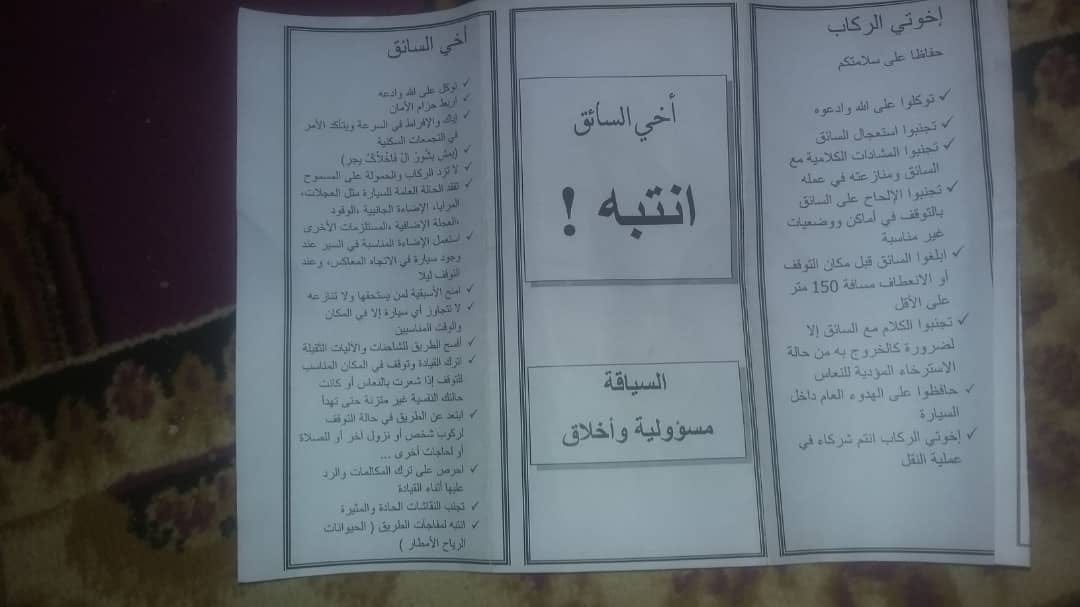 إخوتي الركاب
حفاظا على سلامتكم
✓ توكلوا على الله وادعوه
✓ تجنبوا استعجال السائق
✓ تجنبوا المشادات الكلامية مع
السائق ومنازعته في عمله
✓ تجنبوا الإلحاح على السائق
بالتوقف في أماكن ووضعيات
غير مناسبة
✓ ابلغوا السائق قبل مكان التوقف
أو الانعطاف مسافة 150 متر
على الأقل
✓ تجنبوا الكلام مع السائق إلا
لضرورة كالخروج به من حالة
الاسترخاء المؤدية للنعاس
✓ حافظوا على الهدوء العام داخل
السيارة
✓ إخوتي الركاب انتم شركاء في
عملية النقل
أخي السائق
انتبه !
السياقة
مسؤولية وأخلاق
أخي السائق
✓ توكل على الله وادعه
✓ اربط حزام الأمان
✓ إياك والإفراط في السرعة ويتأكد الأمر
في التجمعات السكنية
✓ (يمش بشور ال فاخلاك يجر)
✓ لا تزد الركاب والحمولة على المسموح
✓ تفقد الحالة العامة للسيارة مثل العجلات،
المرايا، الإضاءة الجانبية ،الوقود
،العجلة الإضافية ،المستلزمات الأخرى
✓ استعمل الإضاءة المناسبة في السير عند
وجود سيارة في الاتجاه المعاكس، وعند
التوقف ليلا
✓ امنح الأسبقية لمن يستحقها ولا تنازعه
✓ لا تتجاوز أي سيارة إلا في المكان
والوقت المناسبين
✓ أفسح الطريق للشاحنات والآليات الثقيلة
✓ اترك القيادة وتوقف في المكان المناسب
للتوقف إذا شعرت بالنعاس أو كانت
حالتك النفسية غير متزنة حتى تهدأ
✓ ابتعد عن الطريق في حالة التوقف
لركوب شخص أو نزول اخر أو للصلاة
أو لحاجات أخرى ...
✓ احرص على ترك المكالمات والرد
عليها أثناء القيادة
✓ تجنب النقاشات الحادة والمثيرة
✓ انتبه لمفاجآت الطريق ( الحيوانات
الرياح الأمطار )